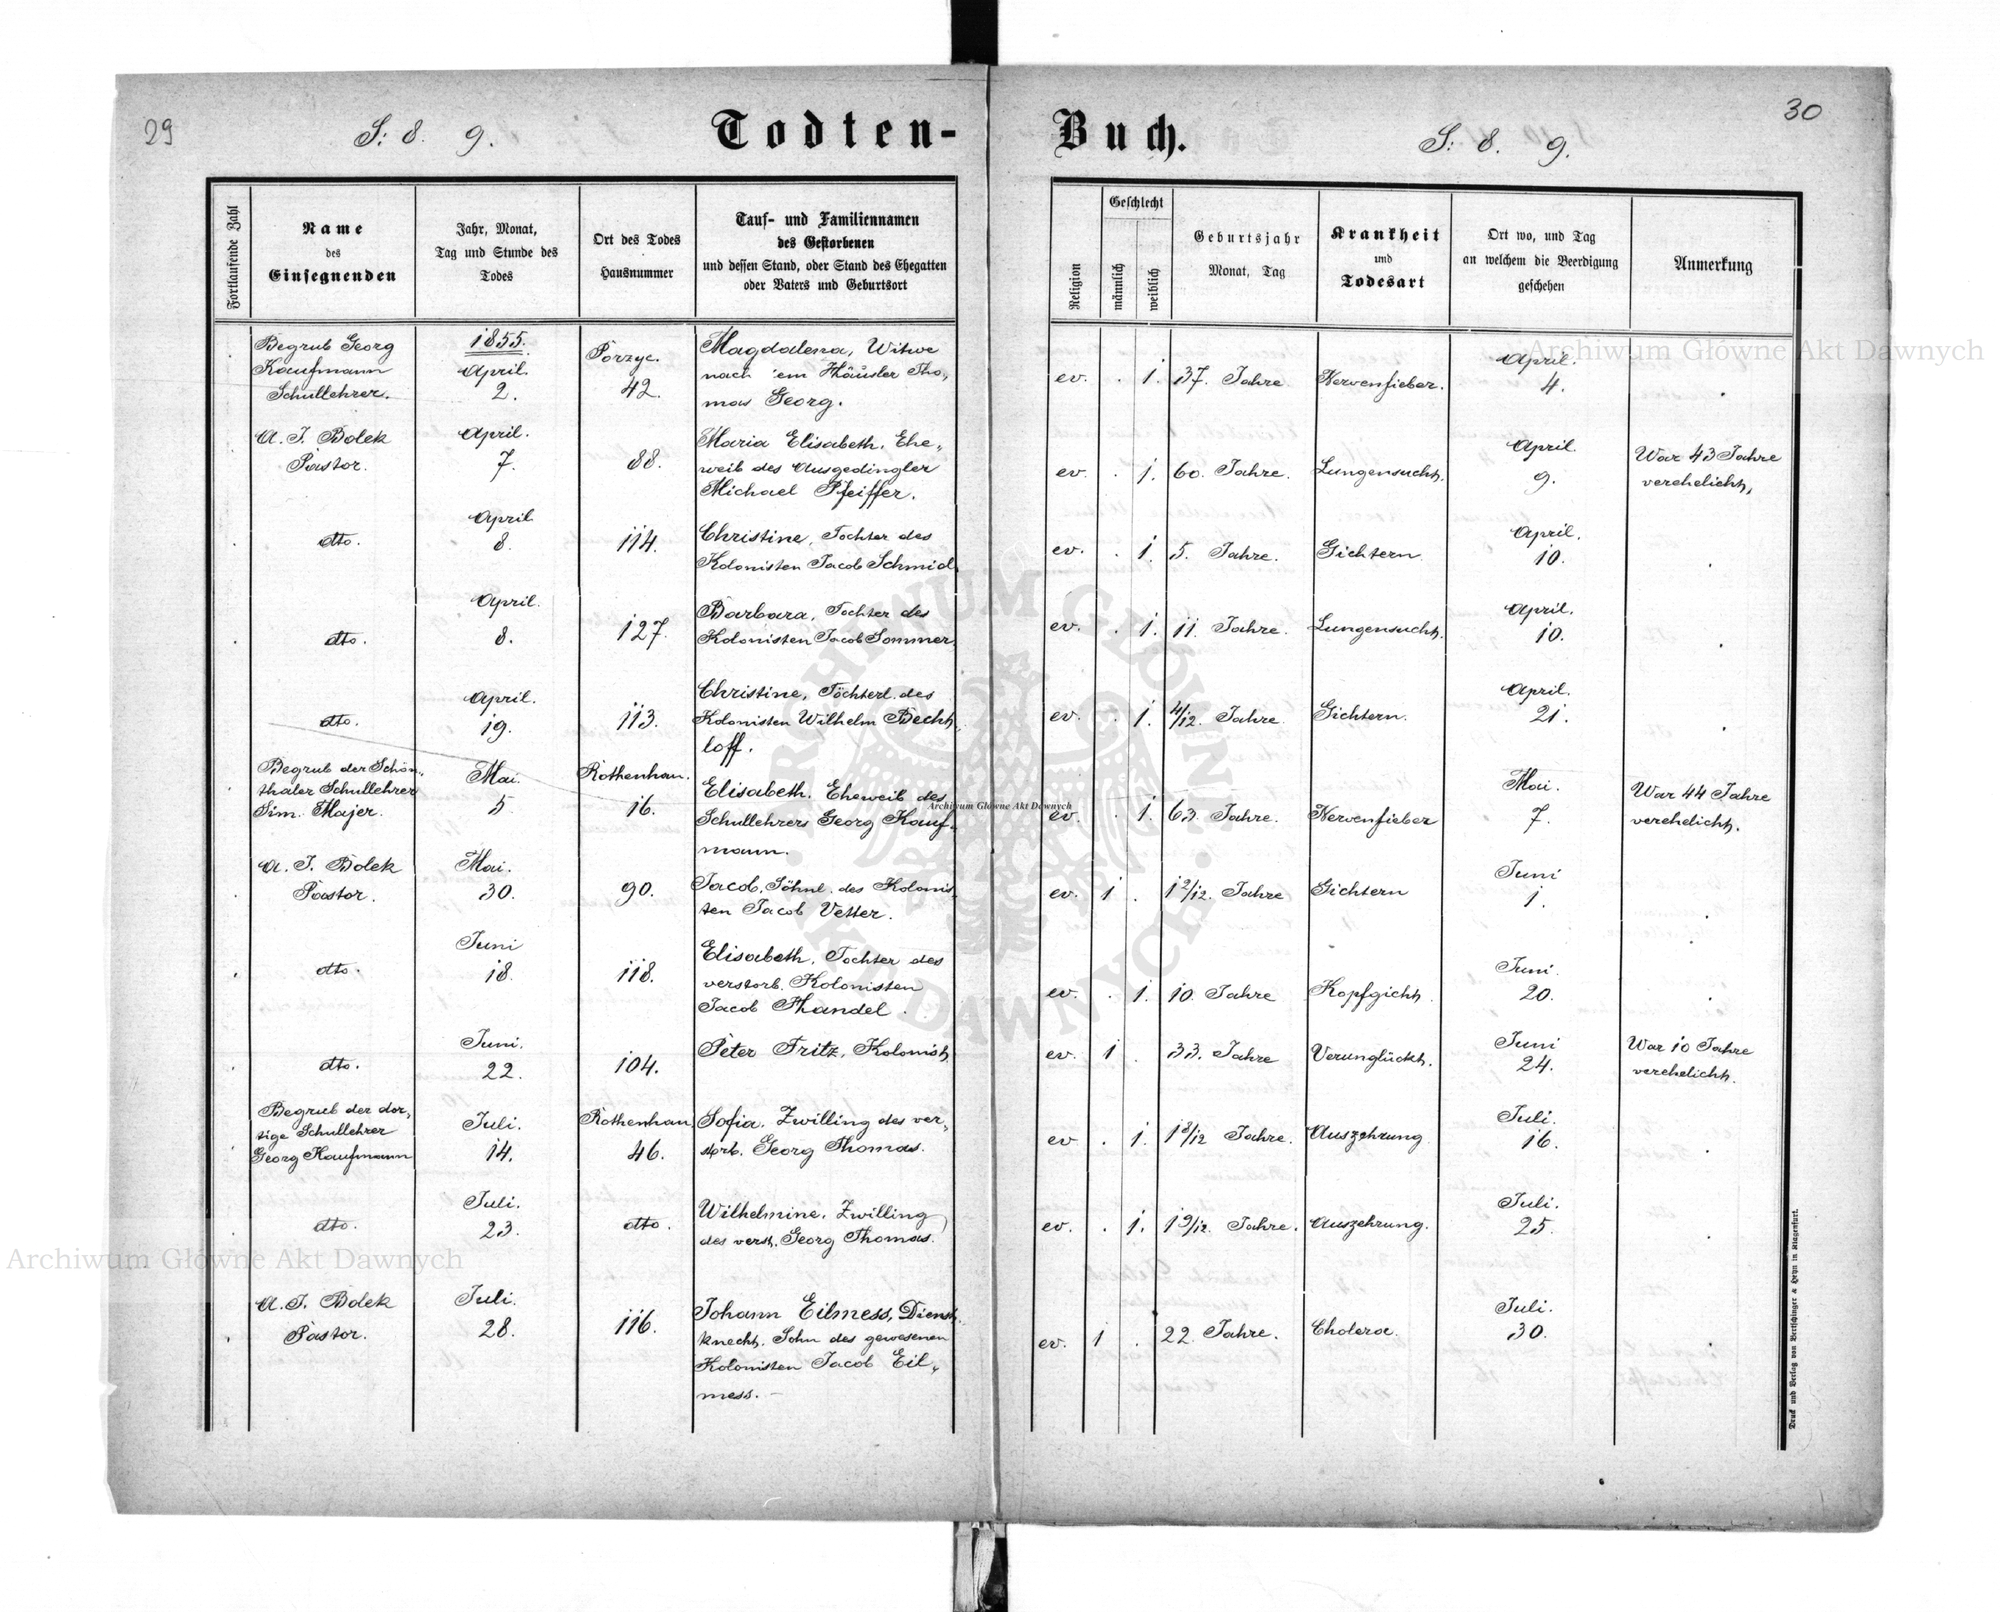 29
S: 8. 9.
Todten-
Fortlaufende Zahl
Name
des
Einsegnenden
Jahr, Monat,
Tag und Stunde des
Todes
Ort des Todes
Hausnummer
Tauf- und Familiennamen
des Gestorbenen
und dessen Stand, oder Stand des Ehegatten
oder Vaters und Geburtsort
Begrub Georg
Kaufmann
Schullehrer.
1855.
April.
2.
Porzyc.
42.
Magdalena, Witwe
nach 'em Häusler Tho„
mas Georg.
A. J. Bolek
Pastor.
April.
7.
88.
Maria Elisabeth, Ehe„
weib des Ausgedingler
Michael Pfeiffer.
dto.
April
8.
114.
Christine, Tochter des
Kolonisten Jacob Schmid.
dto.
April.
8.
127.
Barbara, Tochter des
Kolonisten Jacob Sommer.
dto.
April.
19.
113.
Christine, Töchterl. des
Kolonisten Wilhelm Becht„
loff.
Begrub der Schön„
thaler Schullehrer
Sim. Majer.
Mai.
5.
Rothenhan.
16.
Elisabeth. Eheweib des
Schullehrers Georg Kauf„
mann.
A. J. Bolek
Pastor.
Mai.
30.
90.
Jacob, Söhnl. des Kolonis„
ten Jacob Vetter.
dto.
Juni
18.
118.
Elisabeth, Tochter des
verstorb. Kolonisten
Jacob Handel.
dto.
Juni.
22.
104.
Peter Fritz, Kolonist,
Begrub der dor„
tige Schullehrer
Georg Kaufmann
Juli.
14.
Rothenhan
46.
Sofia, Zwilling des ver„
storb. Georg Thomas.
dto.
Juli.
23.
dto.
Wilhelmine, Zwilling
des verst. Georg Thomas.
A. J. Bolek
Pastor.
Juli.
28.
116.
Johann Eilmess, Dienst„
knecht, Sohn des gewesenen
Kolonisten Jacob Eil„
mess. —
30
Buch.
S: 8. 9.
Religion
Geschlecht
männlich
weiblich
Geburtsjahr
Monat, Tag
Krankheit
und
Todesart
Ort wo, und Tag
an welchem die Beerdigung
geschehen
Anmerkung
ev. . 1. 37. Jahre. Nervenfieber.
April.
4.
ev. . 1. 60. Jahre. Lungensucht.
April.
9.
War 43 Jahre
verehelicht,
ev. . 1. 5. Jahre. Gichtern
April.
10.
ev. . 1. 11. Jahre. Lungensucht.
April.
10.
ev. . 1. 4/12. Jahre. Gichtern.
April.
21.
ev. . 1. 63. Jahre. Nervenfieber
Mai.
7.
War 44 Jahre
verehelicht.
ev. 1 . 1 2/12. Jahre Gichtern
Juni
1.
ev. . 1. 10. Jahre Kopfgicht.
Juni.
20.
ev. 1 . 33. Jahre Verunglückt.
Juni
24.
War 10 Jahre
verehelicht.
ev . 1. 1 8/12 Jahre. Auszehrung
Juli.
16.
ev. . 1. 1 9/12. Jahre. Auszehrung.
Juli.
25.
ev. 1 . 22. Jahre. Cholera.
Juli.
30.
Druck und Verlag von Bertschinger & Heyn in Klagenfurt.
Archiwum Główne Akt Dawnych
Archiwum Główne Akt Dawnych
Archiwum Główne Akt Dawnych
ARCHIWUM GŁÓWNE AKT DAWNYCH